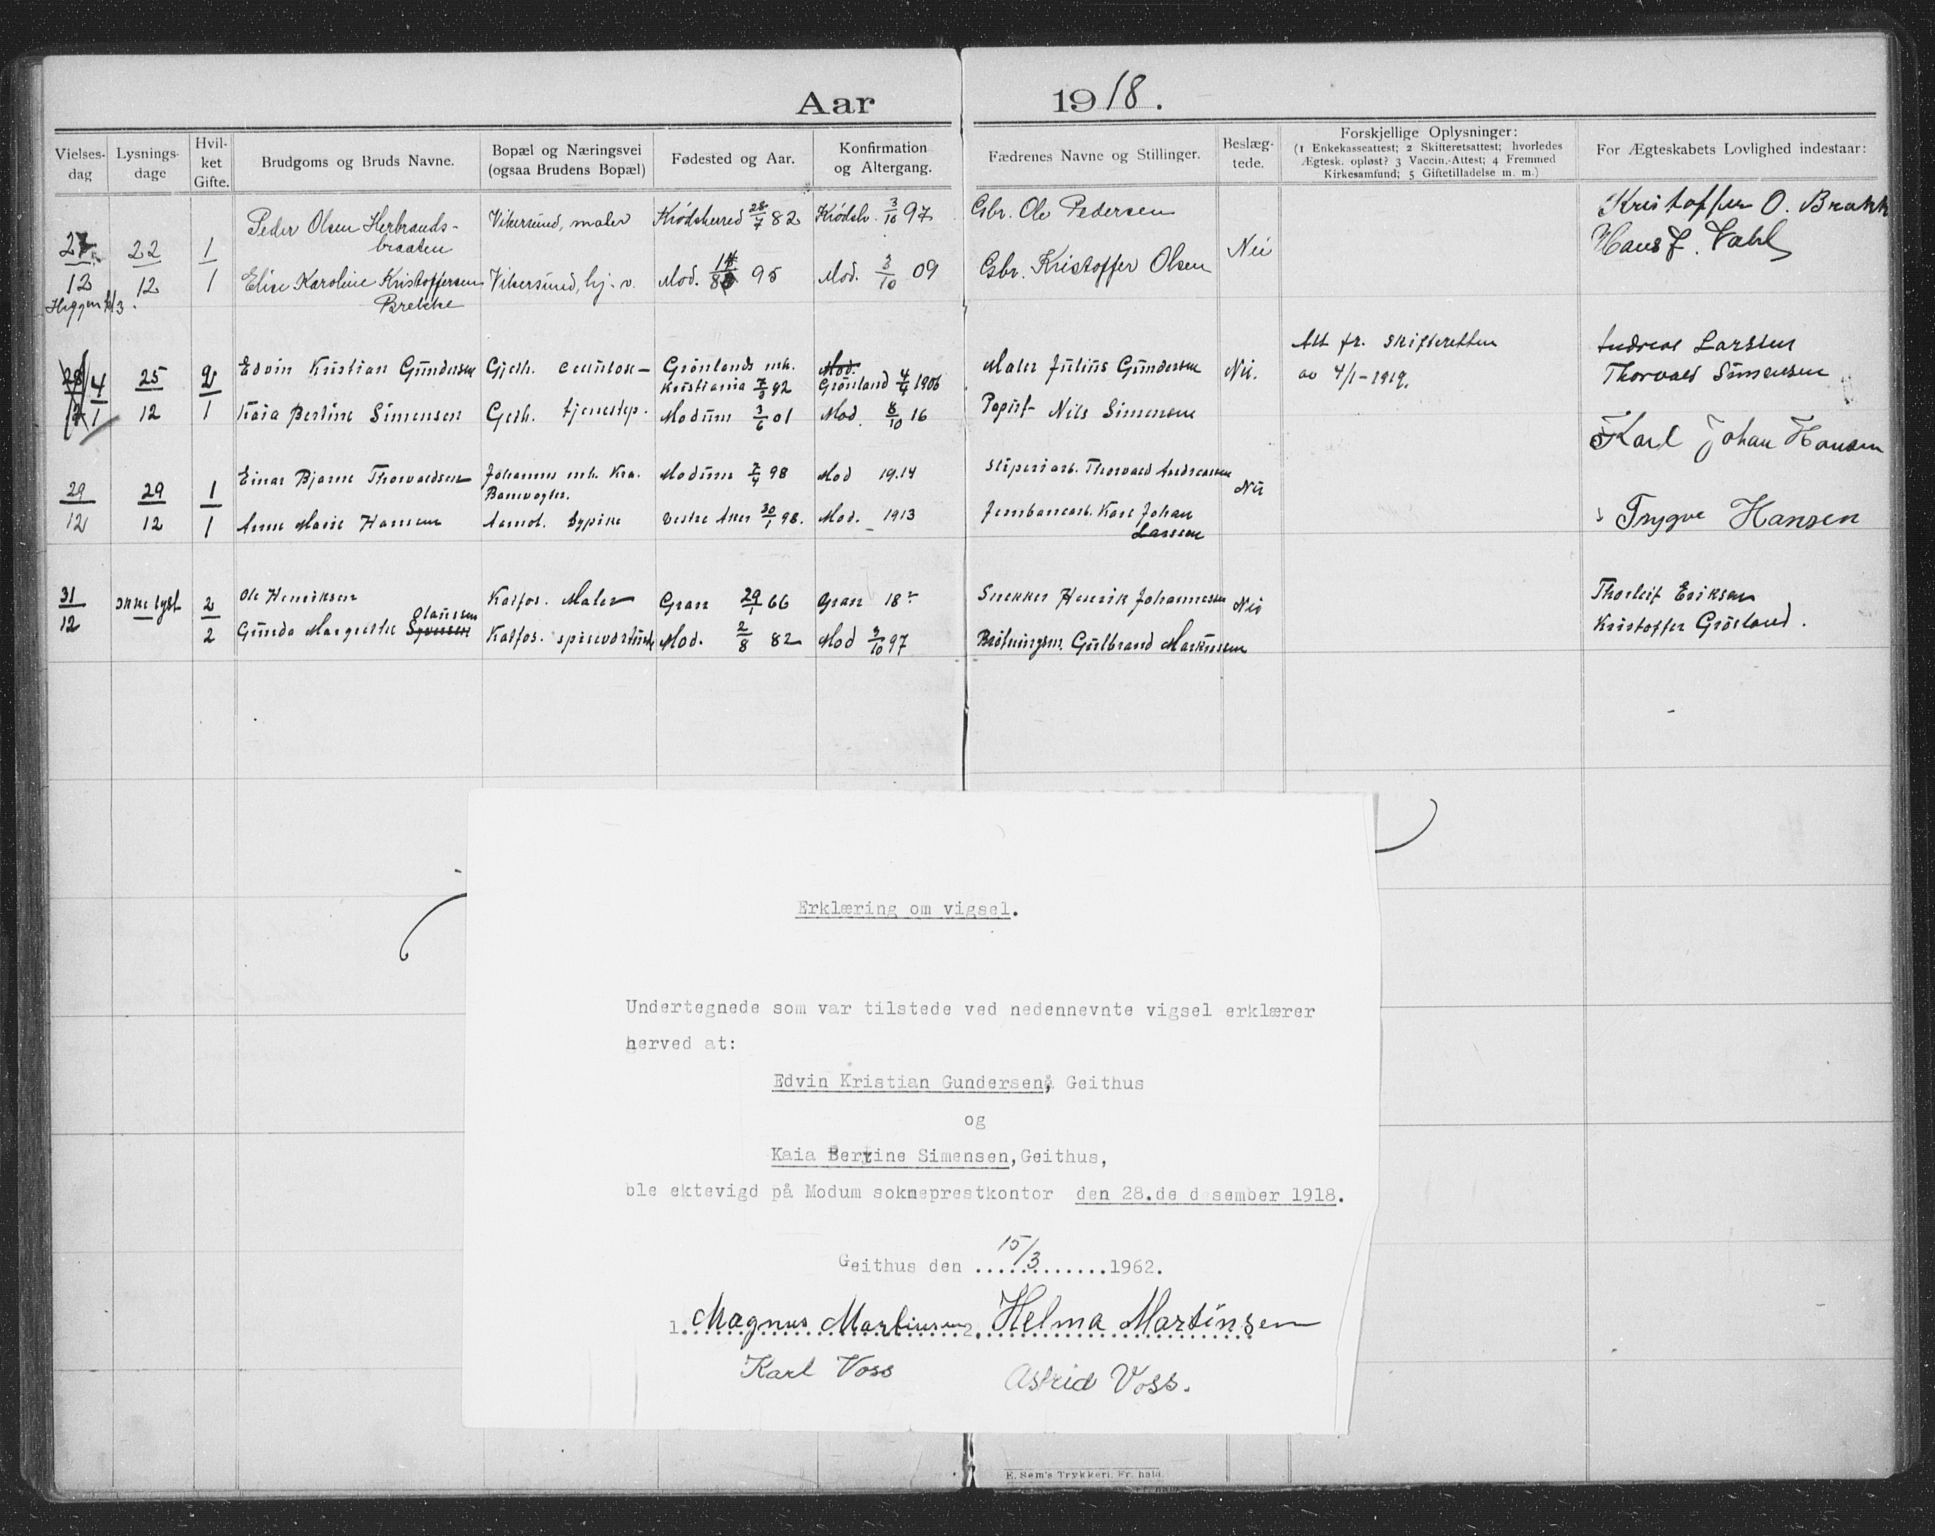 Aar 1918.
Vielses-dag Lysnings-dage Hvil-ket Gifte. Brudgoms og Bruds Navne. Bopæl og Næringsvei (ogsaa Brudens Bopæl) Fødested og Aar. Konfirmation og Altergang. Fædrenes Navne og Stillinger. Beslæg-tede. Forskjellige Oplysninger: (1 Enkekasseattest; 2 Skifteretsattest; hvorledes Ægtesk. opløst? 3 Vaccin.-Attest; 4 Fremmed Kirkesamfund; 5 Giftetilladelse m. m.) For Ægteskabets Lovlighed indestaar:
27/12 22/12 1 Peder Olsen Herbrands-braaten Vikersund, maler Krødsherred 28/7 82 Krødsh. 3/10 97 Gbr. Ole Pedersen Nei Kristoffer O. Brækk
1 Elise Karoline Kristoffersen Brekke Vikersund, hj. v. Mod. 95 Mod. 3/10 09 Gbr. Kristoffer Olsen Hans J. Vahl
28/12 4/1 25/12 2 Edvin Kristian Gundersen Gjeth. cellulose- Grønlands mh. Kristiania 7/3 92 Mod. Grønland 4/4 1906 Maler Julius Gundersen Nei. Att fr. skifteretten av 4/1-1919. Andreas Larsen
1 Kaia Bertine Simensen Geth. tjenestep. Modum 3/6 01 Mod. 8/10 16 Papirf- Nils Simensen Thorvald Simensen
29/12 29/12 1 Einar Bjarne Thorvaldsen Johannes mh. Kra. Banevogter. Modum 7/4 98 Mod 1914 Sliperiarb. Thorvald Andreassen Nei Karl Johan Hansen
1 Anne Marie Hansen Aamot. Sypike Vestre Aker 30/1 98. Mod. 1913 Jernbanearb. Karl Johan Larssen Trygve Hansen
31/12 ikke lyst 2 Ole Henriksen Katfos. Maler Gran 29/1 66 Gran 18- Snekker Henrik Johannessen Nei Thorleif Eriksen
2 Gunda Margrethe Olaussen Katfos. spisevertinde Mod. 2/8 82 Mod 3/10 97 Brøtningsm. Gulbrand Markussen Kristoffer Grøsland.
Erklæring om vigsel.
Undertegnede som var tilstede ved nedennevnte vigsel erklærer
herved at:
Edvin Kristian Gundersen, Geithus
og
Kaia Bertine Simensen, Geithus,
ble ektevigd på Modum sokneprestkontor den 28.de desember 1918.
Geithus den 15/3 1962.
1. Magnus Martinsen 2. Helma Martinsen
Karl Voss Astrid Voss.
E. Sem's Trykkeri. Fr. hald.